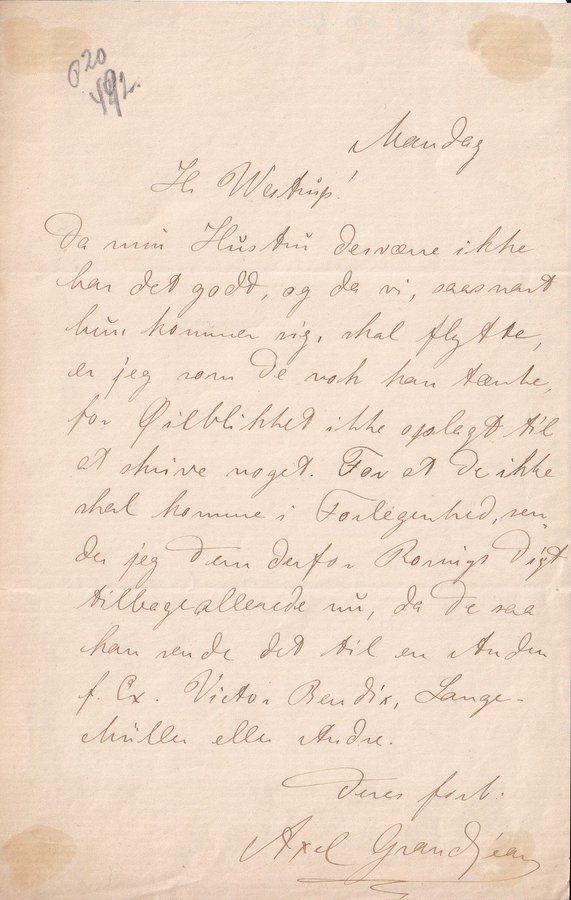 620
492.
Mandag
Hr Westrup!
Da min Hustru desværre ikke
har det godt, og da vi, saasnart
hun kommer sig, skal flytte,
er jeg som De nok kan tænke,
for Øieblikket ikke oplagt til
at skrive noget. For at De ikke
skal komme i Forlegenhed, sen-
der jeg Dem derfor Digt
tilbage allerede nu, da De saa
kan sende det til en Anden
f. Ex. Victor Bendix, Lange-
Müller eller Andre.
Deres forb.
Axel Grandjean